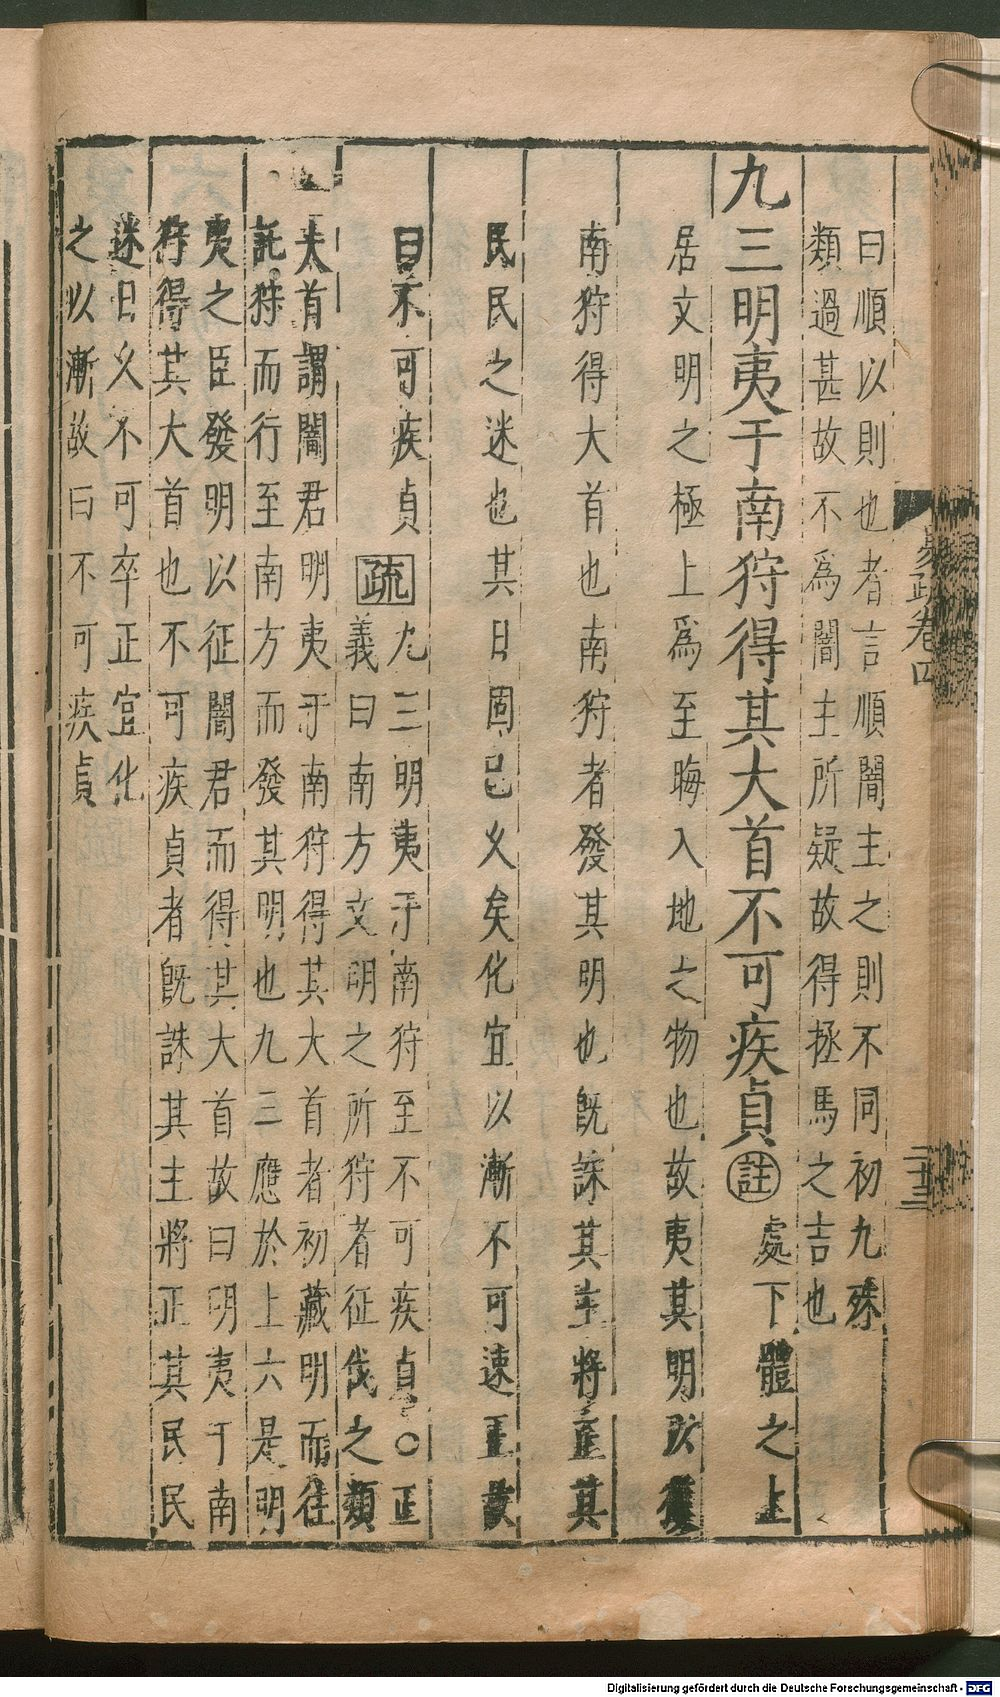 曰順以則也者言順闇主之則不同初九殊
類過甚故不爲闇主所疑故得拯馬之吉也
九三明夷于南狩得其大首不可疾貞註處下體之上
居文明之極上爲至晦入地之物也故夷其明以獲
南狩得大首也南狩者發其明也旣誅其主將正其
民民之迷也其日固已久矣化宜以漸不可速正故
曰不可疾貞疏九三明夷于南狩至不可疾貞○正
義曰南方文明之所狩者征伐之類
大首謂闇君明夷于南狩得其大首者初藏明而往
託狩而行至南方而發其明也九三應於上六是明
夷之臣發明以征闇君而得其大首故曰明夷于南
狩得其大首也不可疾貞者旣誅其主將正其民民
迷日久不可卒正宜化
之以漸故曰不可疾貞
易疏卷四
二十三
Digitalisierung gefördert durch die Deutsche Forschungsgemeinschaft - DFG